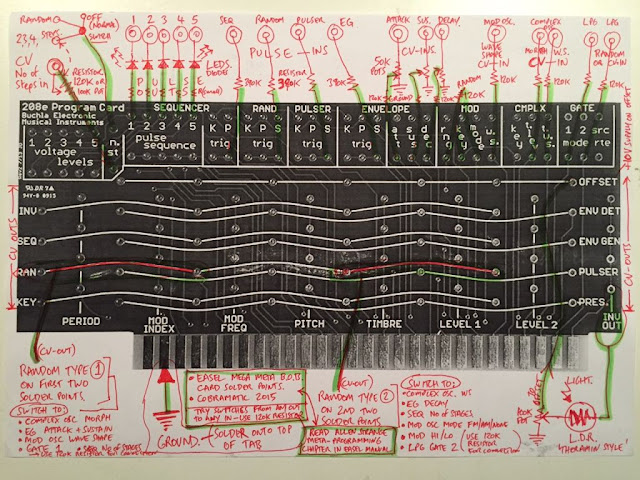 RANDOM
OFF (NORMAL)
SWITCH
2,3,4,
STEPS
5
CV
No of
steps in
RESISTOR
120K OR
100K POT
1 2 3 4 5
PULSE
LEDS.
DIODES
(small)
SEQ RANDOM PULSER EG
PULSE - INS
390K
RESISTOR
390K
390K
ATTACK SUS. DECAY
CV-INS
50K
POTS
120K GROUND 120K
MOD OSC.
WAVE
SHAPE
CV IN
RANDOM
120K
120K
COMPLEX
OSC
MORPH W.S.
CV IN
120K
LPG LPG
RANDOM
OR CHAIN
120K
+10V SUPPLY ON BEAT
208e Program Card
Buchla Electronic
Musical Instruments
1 2 3 4 5 n.
voltage st
levels
SEQUENCER
1 2 3 4 5
pulse
sequence
K P S
trig
RAND
K P S
trig
PULSER
K P S
trig
K P S
trig
ENVELOPE
MOD
CMPLX
GATE
1 2 src
mode rte
OFFSET
CV OUTS
INV
SEQ
RAN
KEY
ENV DET
ENV GEN
PULSER
PRES.
CV-OUTS
PERIOD
MOD
INDEX
MOD
FREQ
PITCH
TIMBRE
LEVEL 1
LEVEL 2
INV
OUT
(CV-OUT)
RANDOM TYPE 1
ON FIRST TWO
SOLDER POINTS.
SWITCH TO:
• COMPLEX OSC. MORPH
• EG ATTACK + SUSTAIN
• MOD OSC WAVE SHAPE
• GATE 1 • SEQ No OF STAGES
- USE 120K RESISTOR FOR CONNECTION
GROUND.
SOLDER ONTO
TOP OF
TAB
• EASEL MEGA META B.O.B.
CARD SOLDER POINTS.
• COBRAMATIC 2015
TRY SWITCHES FROM ANY OUT
TO ANY IN - USE 120K RESISTOR
READ ALLEN STRANGE
META-PROGRAMMING
CHAPTER IN EASEL MANUAL
(CV-OUT)
RANDOM TYPE 2
ON 2ND TWO
SOLDER POINTS
SWITCH TO:
• COMPLEX OSC. WS
• EG DECAY
• SEQ No OF STAGES.
• MOD OSC MODE FM/AM/NONE
• MOD HI/LO
• LPG GATE 2
USE 120K
RESISTOR
FOR CONNECTION
OFFSET
100K
POT
LIGHT.
L.D.R
'THERAMIN STYLE'